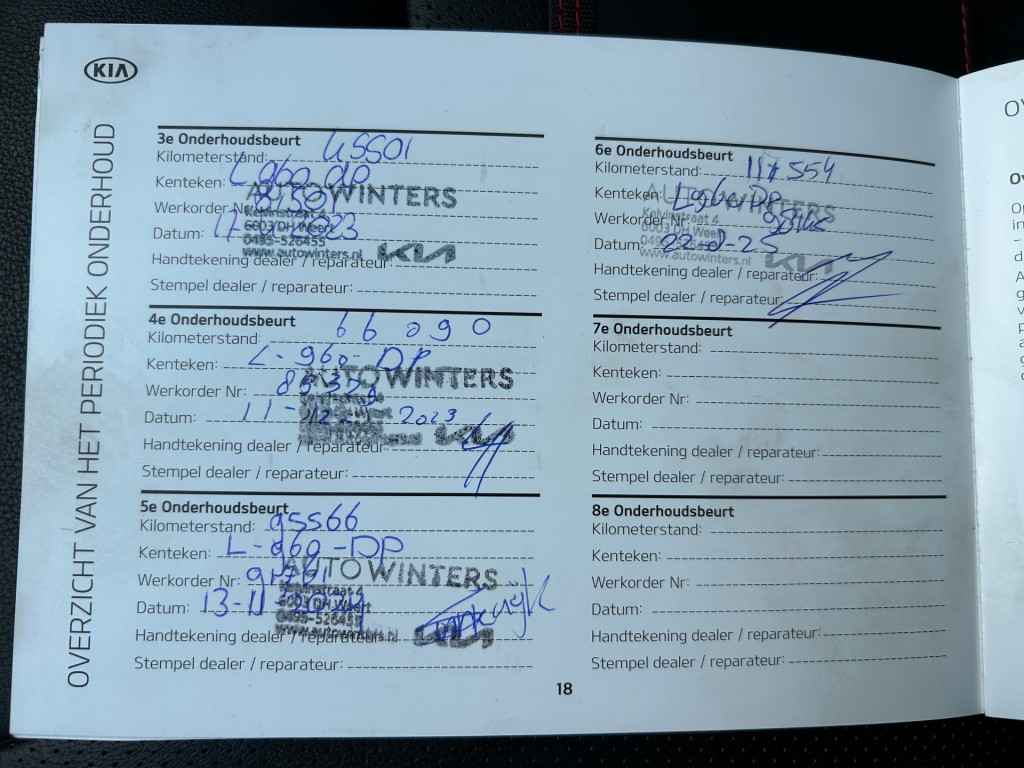 KIA
OVERZICHT VAN HET PERIODIEK ONDERHOUD
3e Onderhoudsbeurt
Kilometerstand: 45501
Kenteken: L960 dp
AUTOWINTERS
Werkorder Nr:
Kelvinstraat 4
6003 DH Weert
Datum:
0495-526455
www.autowinters.nl
KIA
Handtekening dealer / reparateur:
Stempel dealer / reparateur:
4e Onderhoudsbeurt
Kilometerstand: 66 090
Kenteken: L-960-DP
AUTOWINTERS
Werkorder Nr:
Datum: 11-12-2023
KIA
Handtekening dealer / reparateur:
Stempel dealer / reparateur:
5e Onderhoudsbeurt
Kilometerstand: 95566
Kenteken: L-960-DP
AUTOWINTERS
Werkorder Nr:
Kelvinstraat 4
6003 DH Weert
Datum: 13-11
0495-526455
www.autowinters.nl
KIA
Handtekening dealer / reparateur:
Stempel dealer / reparateur:
6e Onderhoudsbeurt
Kilometerstand: 117554
Kenteken: L960DP
AUTOWINTERS
Werkorder Nr:
Kelvinstraat 4
6003 DH Weert
Datum:
www.autowinters.nl
KIA
Handtekening dealer / reparateur:
Stempel dealer / reparateur:
7e Onderhoudsbeurt
Kilometerstand:
Kenteken:
Werkorder Nr:
Datum:
Handtekening dealer / reparateur:
Stempel dealer / reparateur:
8e Onderhoudsbeurt
Kilometerstand:
Kenteken:
Werkorder Nr:
Datum:
Handtekening dealer / reparateur:
Stempel dealer / reparateur:
18